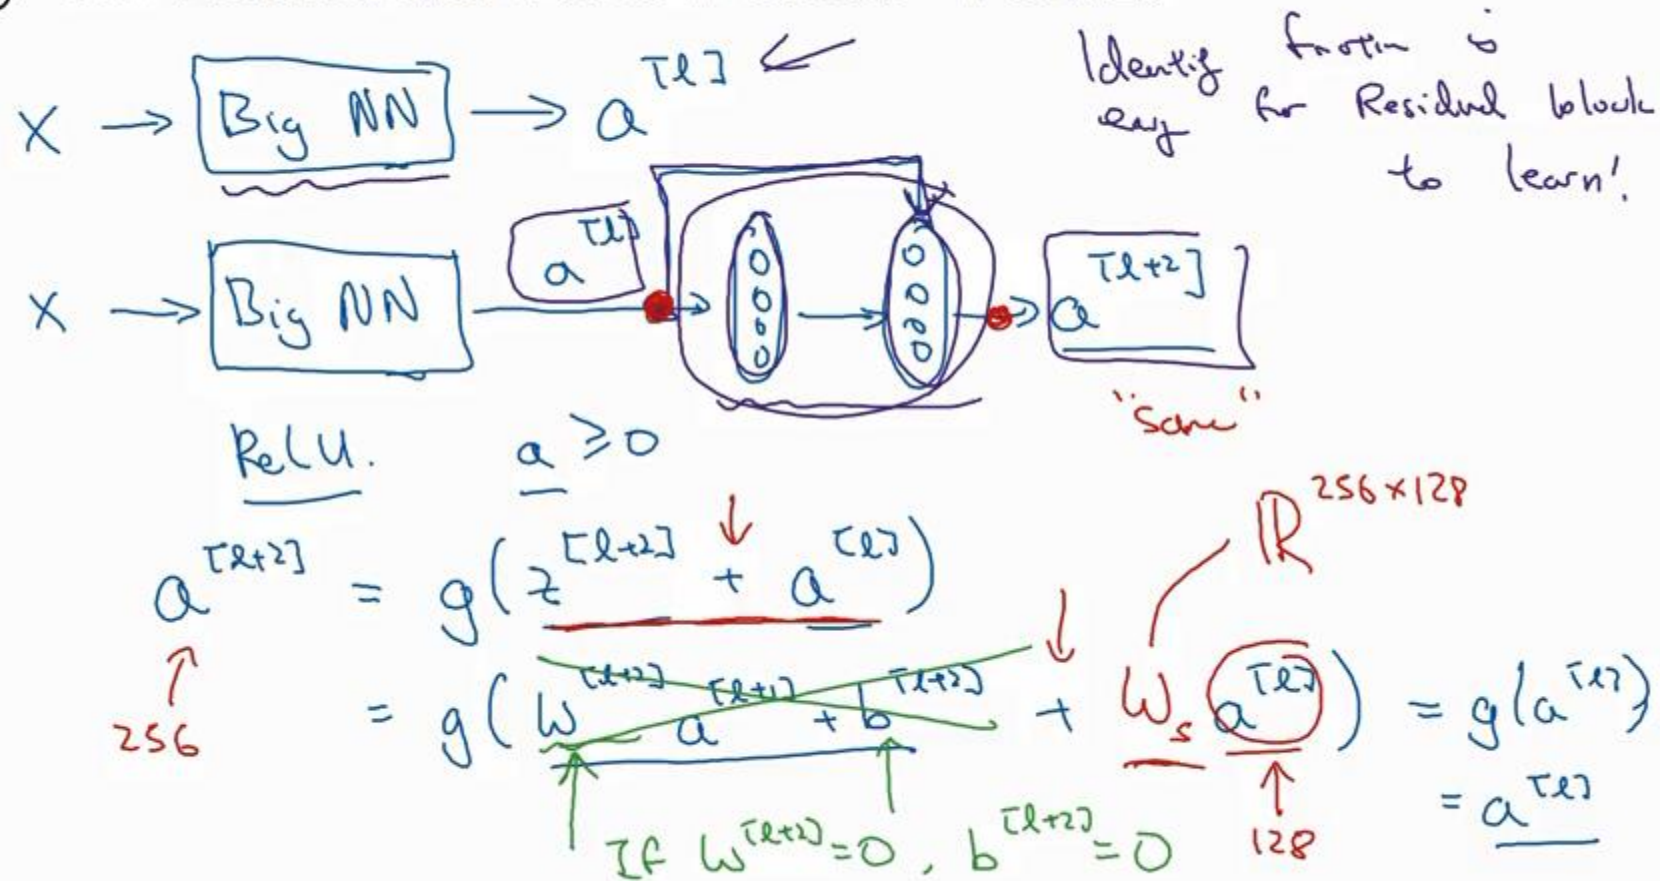 X → Big NN → a^[l]
Identity function is
easy for Residual block
to learn!
X → Big NN a^[l] → a^[l+2]
"same"
ReLU. a ≥ 0
256×128
ℝ
a^[l+2] = g(z^[l+2] + a^[l])
256
= g(W^[l+2] a^[l+1] + b^[l+2] + W_s a^[l]) = g(a^[l])
= a^[l]
If W^[l+2] = 0, b^[l+2] = 0
128